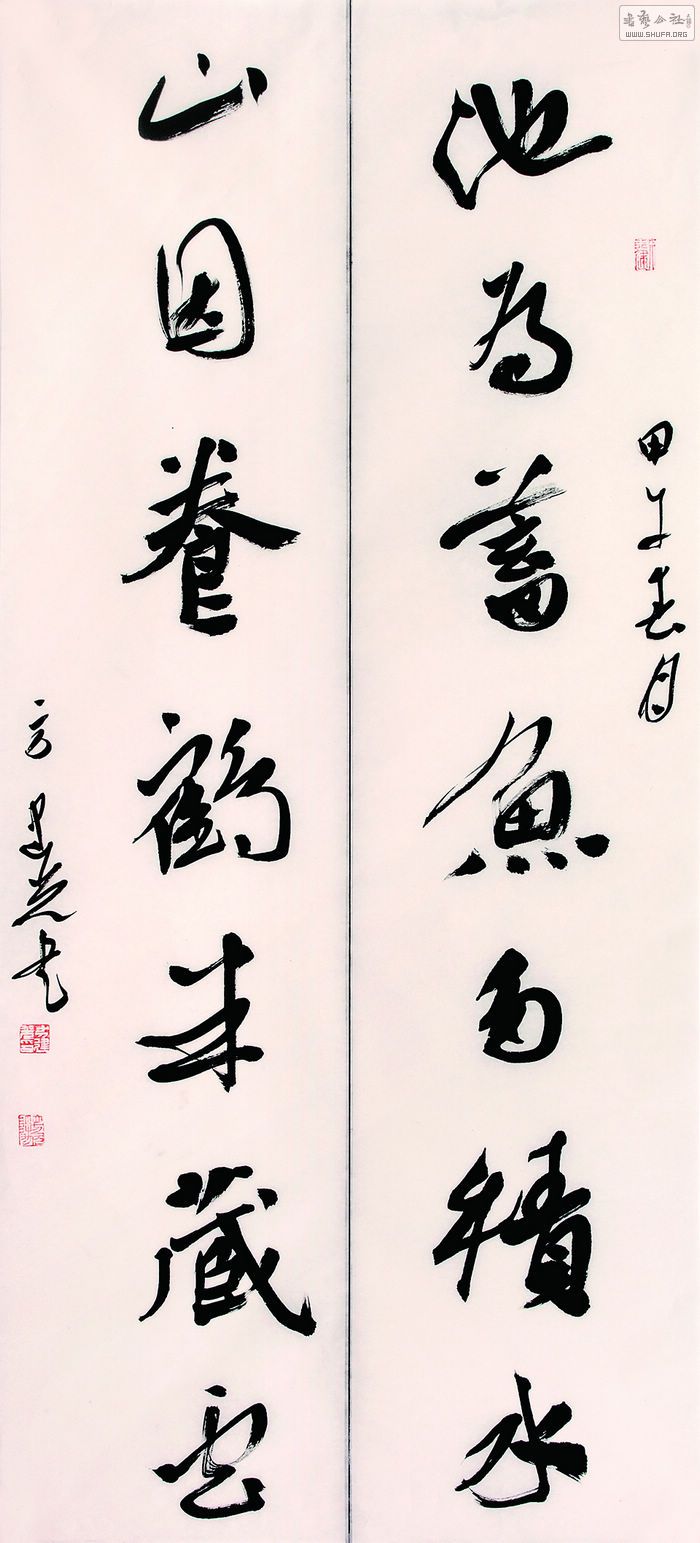 池为蓄魚多積水
甲午春月
山因養鶴半藏雲
方建光书
書藝公社
WWW.SHUFA.ORG